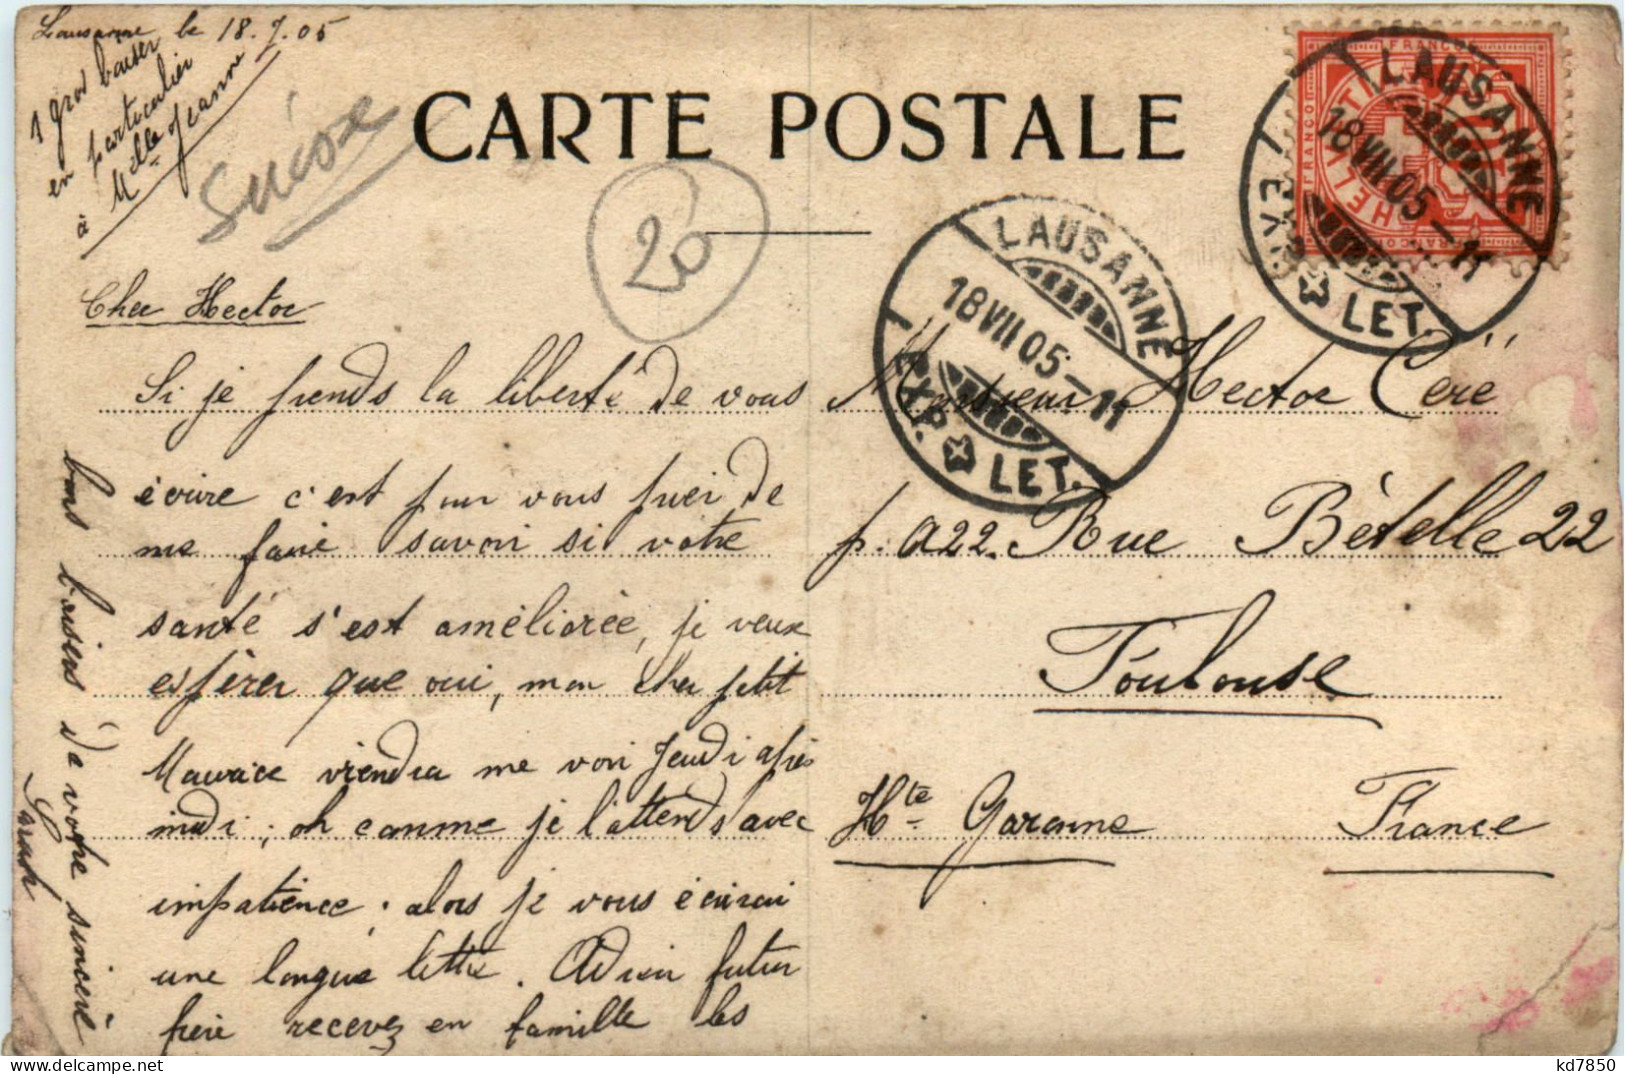 Lausanne le 18.7.05
1 gros baiser
en particulier
à Melle Jeanne
Suisse
20
CARTE POSTALE
FRANCO
LAUSANNE
18 VII 05 – 11
EXP. LET.
LAUSANNE
18 VII 05 – 11
EXP. LET.
Cher Hector
Si je prends la liberté de vous
écrire c'est pour vous prier de
me faire savoir si votre
santé s'est améliorée, je veux
espérer que oui, mon cher petit
Maurice viendra me voir Jeudi après
midi; oh comme je l'attends avec
impatience. alors je vous écrirai
une longue lettre. Adieu futur
frère recevez en famille les
bons baisers de votre sincère
Sarah
Monsieur Hector Cere
p. a 22. Rue Bételle 22
Toulouse
Hte Garonne France
kd7850